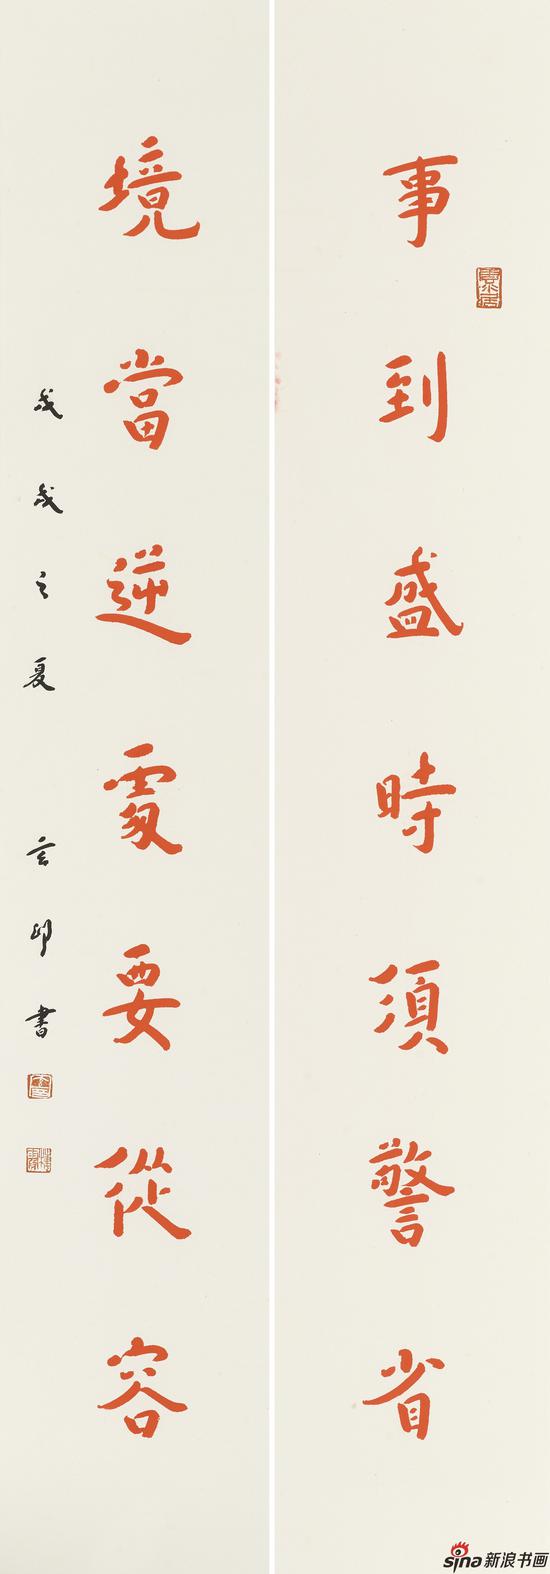 事到盛時須警省
境當逆處要從容
戊戌之夏 言印書
sina 新浪书画